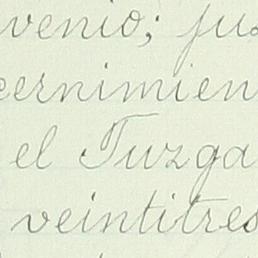 venio; ju
cernimien
el Juzga
veintitres